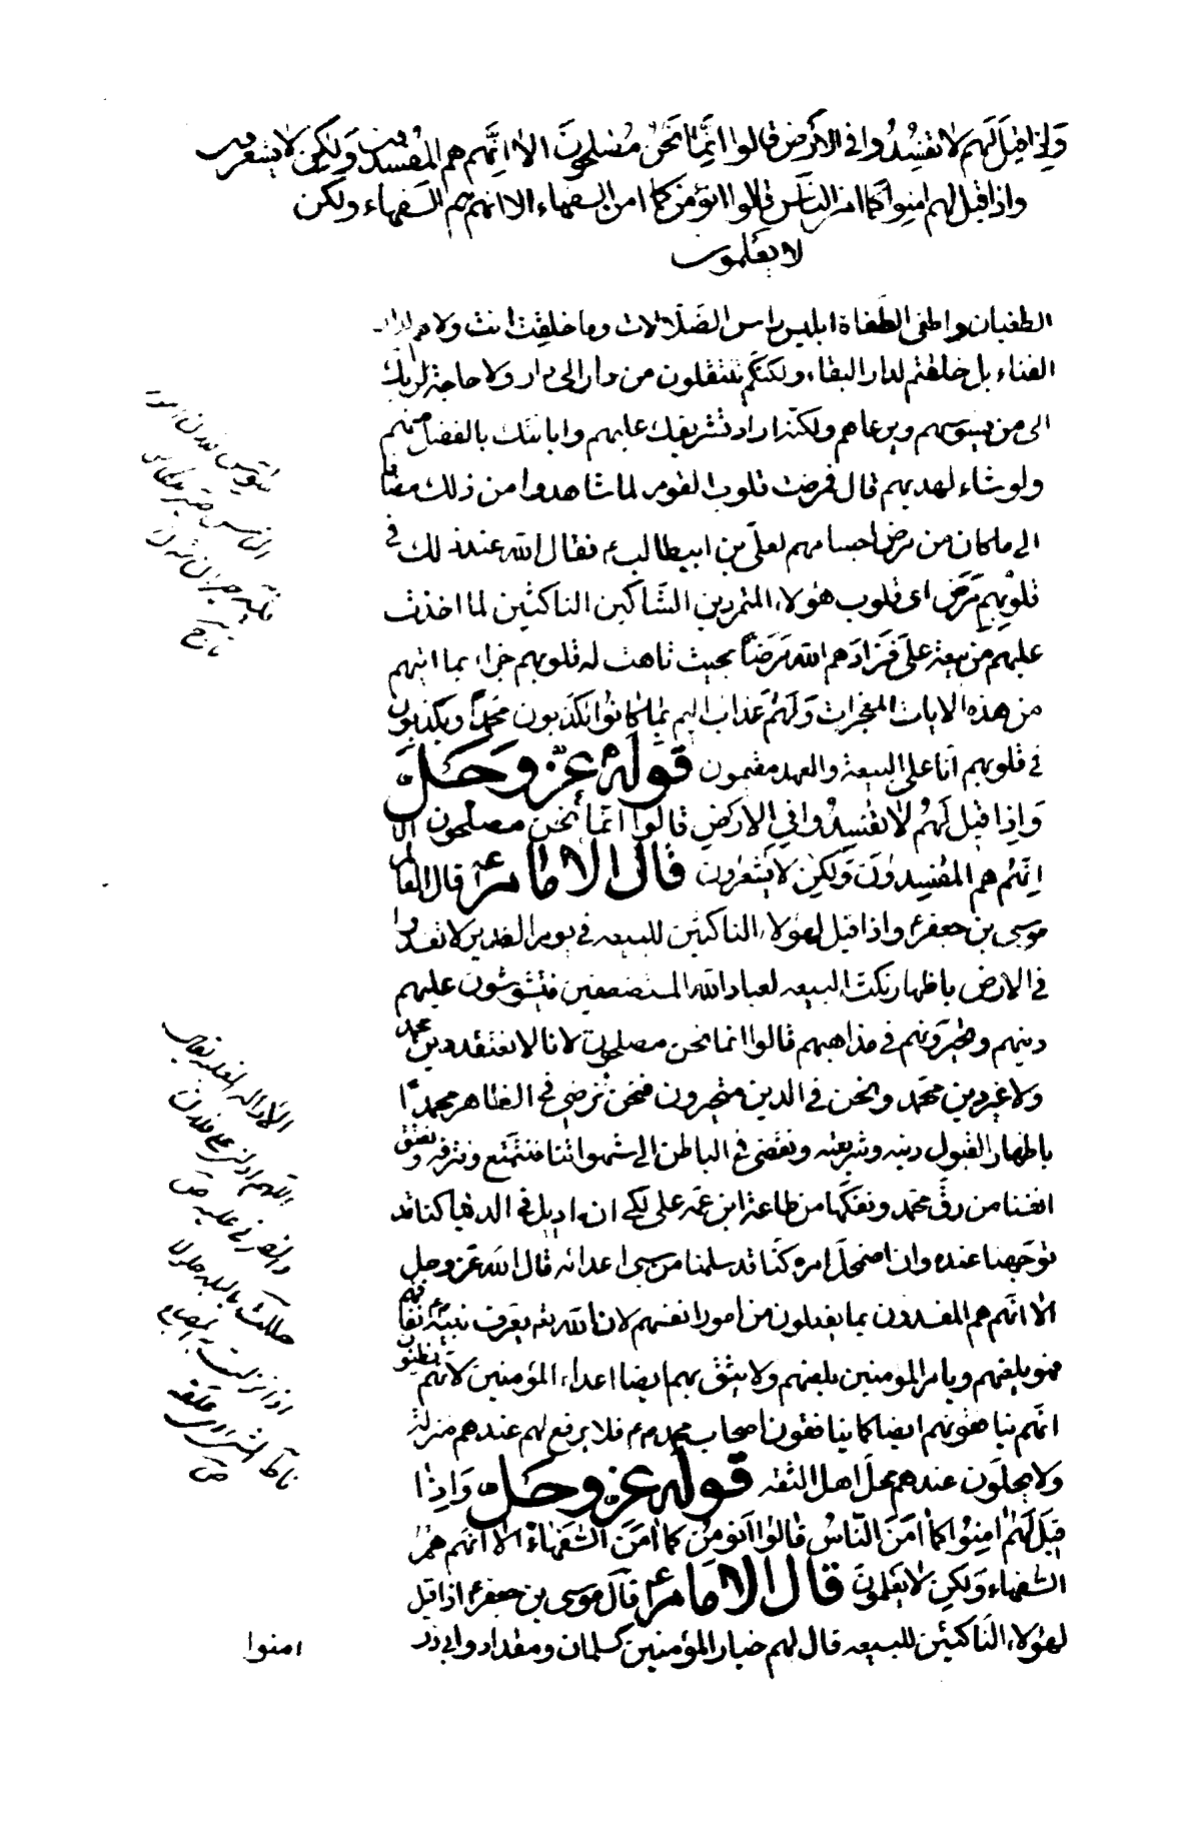 وَاِذا قيلَ لَهم لا تُفسِدُوا في الاَرض قالوا اِنَّما نَحنُ مُصلحونَ الا اِنَّهم هم المُفسدون وَلكِن لا يشعرون
واذا قيل لهم امنوا كما امن الناس قالوا انؤمن كما امن السفهاء الا انهم هم السفهاء ولكن
لا يعلمون
الطغيان واطغى الطغاة ابليس راس الضلالات وما خلقت انت ولا هم لدار
الفناء بل خلقتم لدار البقاء ولكنكم تنتقلون من دار الى دار ولا حاجة لربك
الى من يسوسهم ويرعاهم ولكنه اراد تشريفك عليهم وابانتك بالفضل منهم
ولو شاء لهديهم قال فمرضت قلوب القوم لما شاهدوا من ذلك مضافا
الى ما كان من مرض اجسامهم لعلى بن ابيطالب ع فقال الله عند ذلك في
قلوبِهِم مَرَض اى قلوب هؤلاء المتمردين الشاكين الناكثين لما اخذت
عليهم من بيعة على فَزادَهم الله مَرَضًا بحيث تاهت له قلوبهم جزاء بما اتيهم
من هذه الايات المعجزات وَلَهُم عَذاب اليم بما كانوا يكذبون محمدًا ويكذبون
في قلوبهم انا على البيعة والعهد مقيمون قوله عزّ وجَلّ
وَاِذا قيل لَهُم لا تُفسِدُوا في الارضِ قالوا انما نحن مصلحون الا
اِنّهُم هم المُفسِدونَ وَلكِن لا يَشعُرون قال الامام ع قال العالم
موسى بن جعفر ع واذا قيل لهؤلاء الناكثين للبيعه في يوم الغدير لا تفسدوا
في الارض باظهار نكث البيعه لعباد الله المستضعفين فتشوشون عليهم
دينهم وتحيرونهم في مذاهبهم قالوا انما نحن مصلحون لانا لا نعتقد دين محمد
ولا غير دين محمد ونحن في الدين متحيرون فنحن نرضى في الظاهر محمدًا
باظهار القبول دينه وشريعته ونقضى في الباطن الى شهواتنا فنتمتع ونترفه ونعتق
انفسنا من رق محمد ونفكها من طاعة ابن عمه على لكى ان اديل في الدنيا كنا قد
توجهنا عنده وان اضمحل امره كنا قد سلمنا من سبى اعدائه قال الله عز وجل
الا انهم هم المفسدون بما يفعلون من امور انفسهم لان الله تعه يعرف نبيه ع نفاقهم
فهو يلعنهم ويامر المؤمنين بلعنهم ولا يثق بهم ايضا اعداء المؤمنين لانهم يظنون
انهم ينافقونهم ايضا كما ينافقون اصحاب محمد م فلا يرفع لهم عندهم منزلة
ولا يحلون عندهم محل اهل الثقه قوله عز وجل وَاِذا
قيلَ لَهُم امِنوا كما امَنَ النّاسُ قالوا اَنؤمِن كما امَنَ السّفَهاءُ الا انّهم هُمُ
السّفهاء وَلكِن لا يَعلَمونَ قال الامام ع قال موسى بن جعفر ع اذا قيل
لهؤلاء الناكثين للبيعه قال لهم خيار المؤمنين كسلمان ومقداد وابى ذر
امنوا